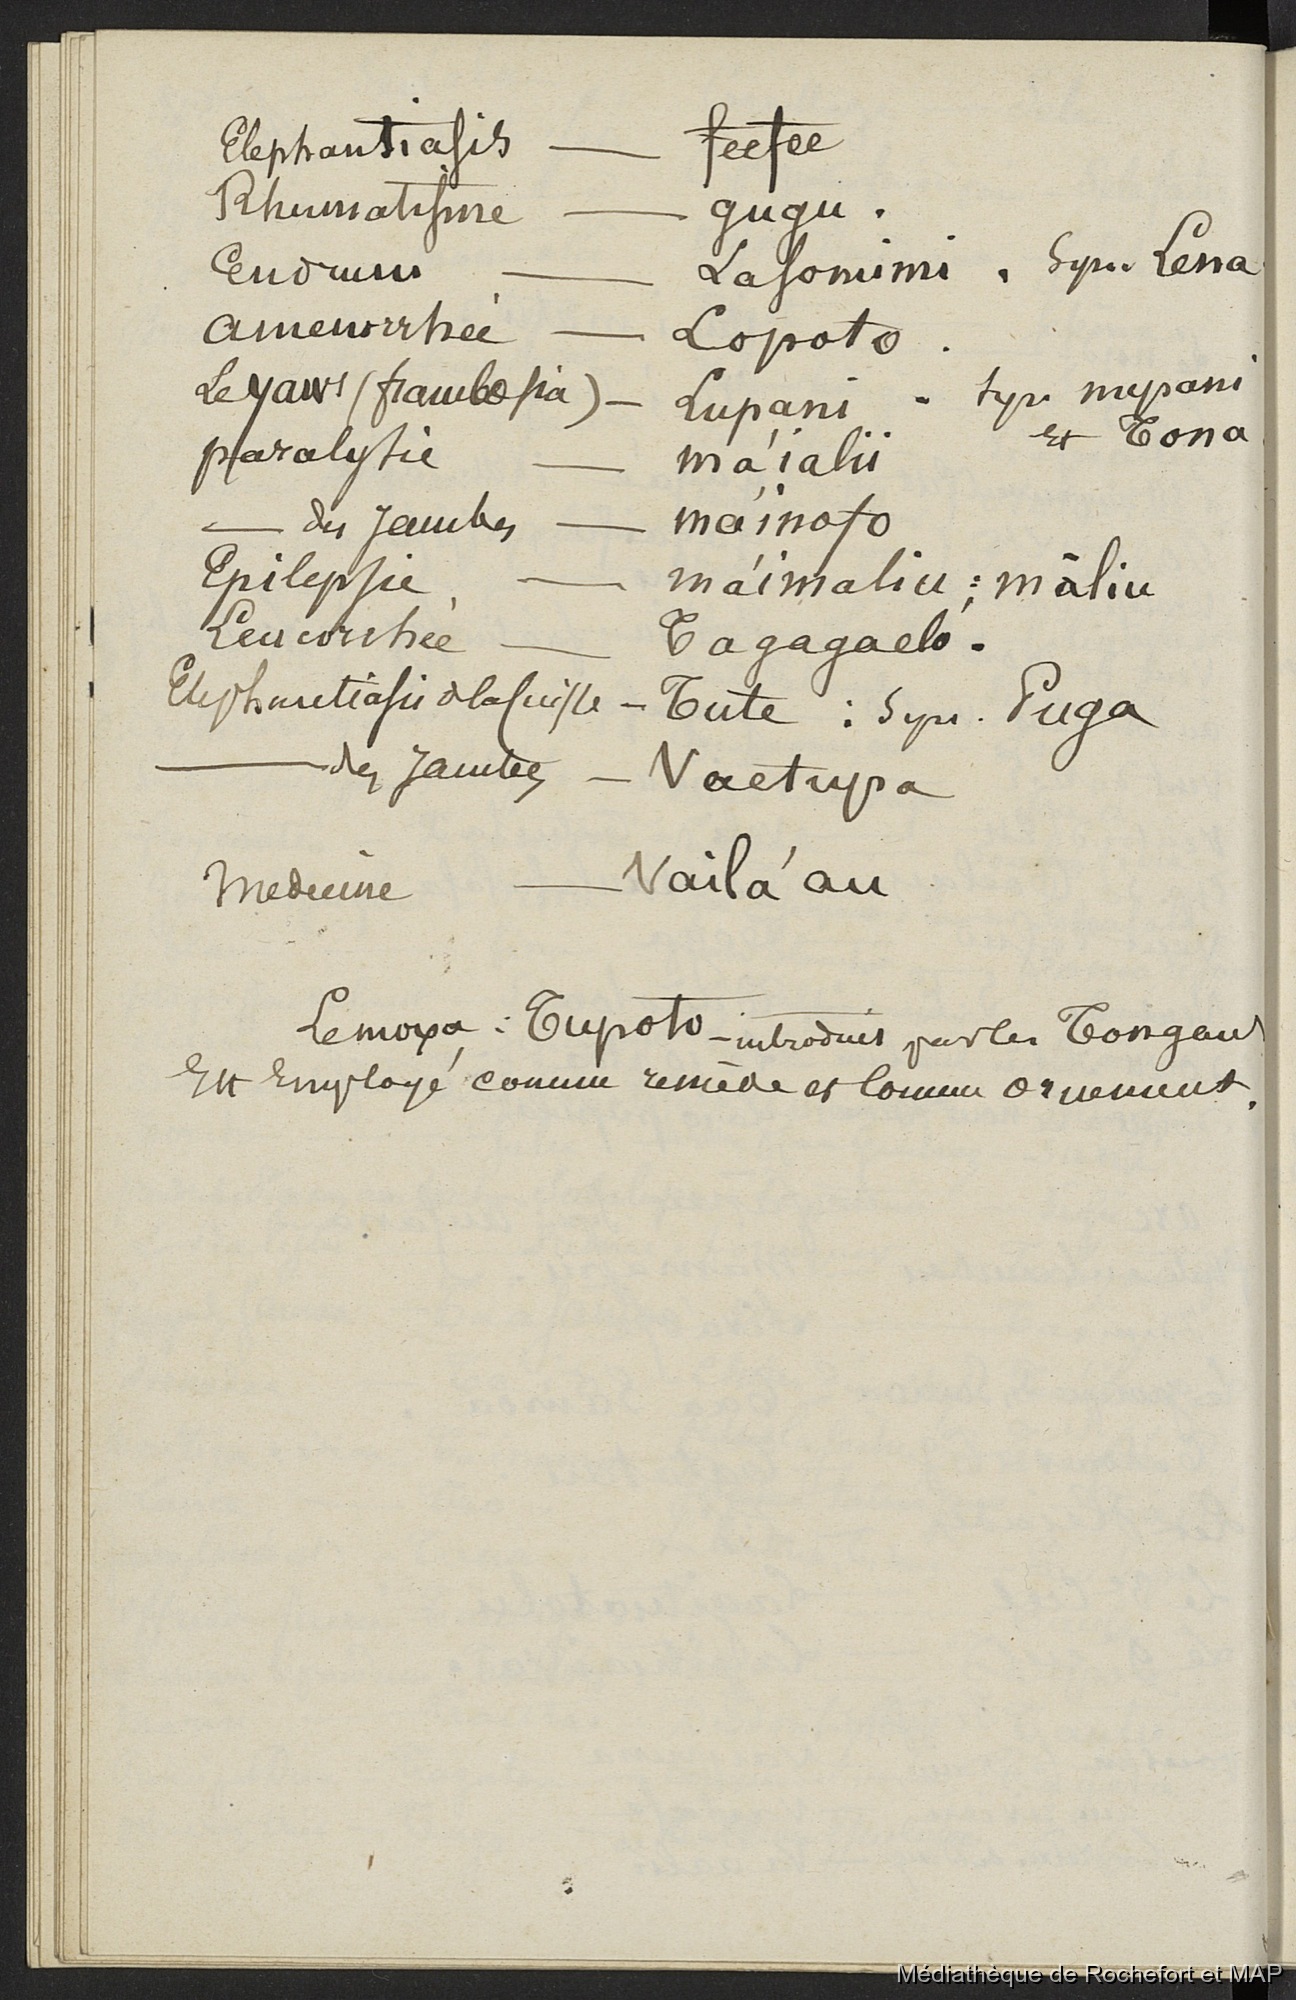 Elephantiasis — feefee
Rhumatisme — gugu.
— Lasomimi. Syn. Lena
Amenorrhée — Lopoto.
Le yaws (frambœsia) — Lupani - Syn mupani
et Tona
paralysie — má'ialii
— des Jambes — má'inofo
Epilepsie — má'imaliu; māliu
Leucorrhée — Tagagaelo.
Elephantiasis de la cuisse — Tute : Syn. Puga
— des Jambes — Vaetupa
Medecine — Vailá'au
Le moxa : Tupoto — introduit par les Tongans
Est Employé comme remède et comme ornement.
Médiathèque de Rochefort et MAP